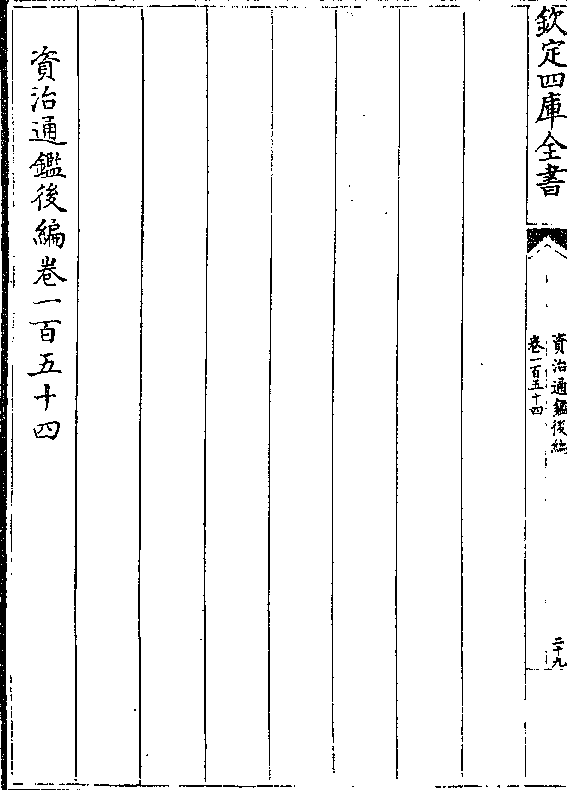 欽定四庫全書
資治通鑑後編
卷一百五十四
二十九
資治通鑑後編卷一百五十四